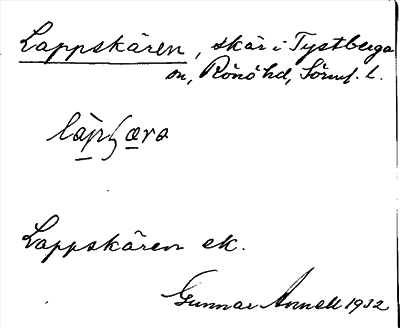 Lappskären, skär i Tystberga
sn, Rönö hd, Sörml. l.
Lappskären ek.
Gunnar Annell 1932